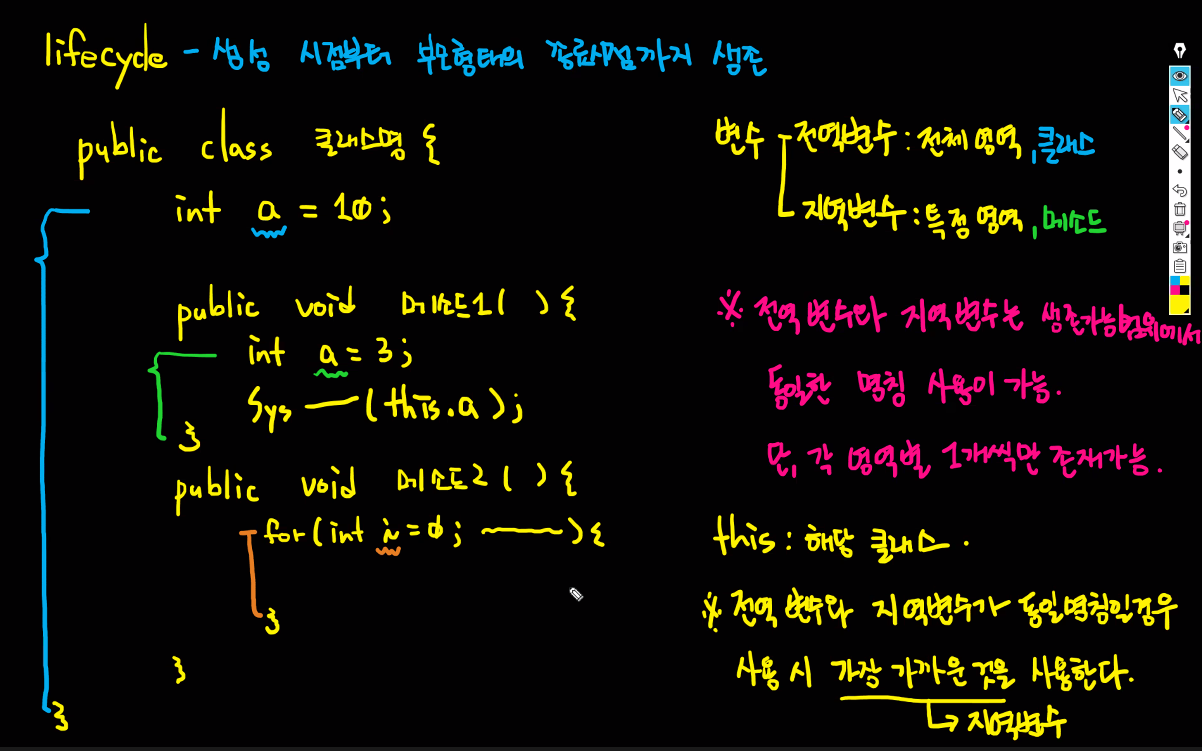 lifecycle - 생성 시점부터 부모형태의 종료시점까지 생존
public class 클래스명 {
int a = 10;
public void 메소드1( ){
int a = 3;
Sys ——(this.a);
}
public void 메소드2( ){
for(int i=0; ———){
}
}
}
변수 전역변수 : 전체 영역, 클래스
지역변수 : 특정 영역, 메소드
※ 전역 변수와 지역변수는 생존가능범위에서
동일한 명칭 사용이 가능.
단, 각 영역별 1개씩만 존재가능.
this : 해당 클래스.
※ 전역 변수와 지역변수가 동일명칭일경우
사용 시 가장 가까운 것을 사용한다.
↳ 지역변수